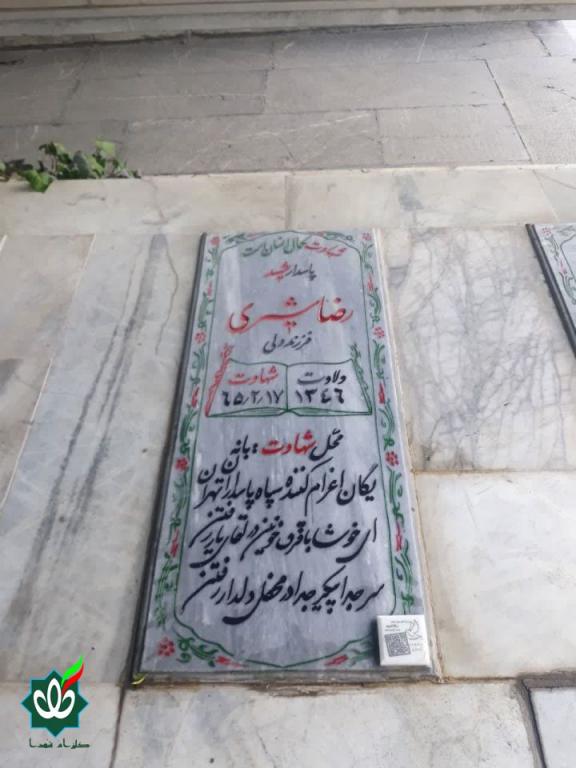 شهادت کمال انسان است
پاسدار شهید
رضا بشیری
فرزند ولی
ولادت شهادت
۱۳۴۶ ۶۵/۲/۱۷
محل شهادت: بانه
یگان اعزام کننده سپاه پاسداران تهران
ای خوشا با فرق خونین در لقای یار رفتن
سر جدا پیکر جدا در محفل دلدار رفتن
گلزار شهدا